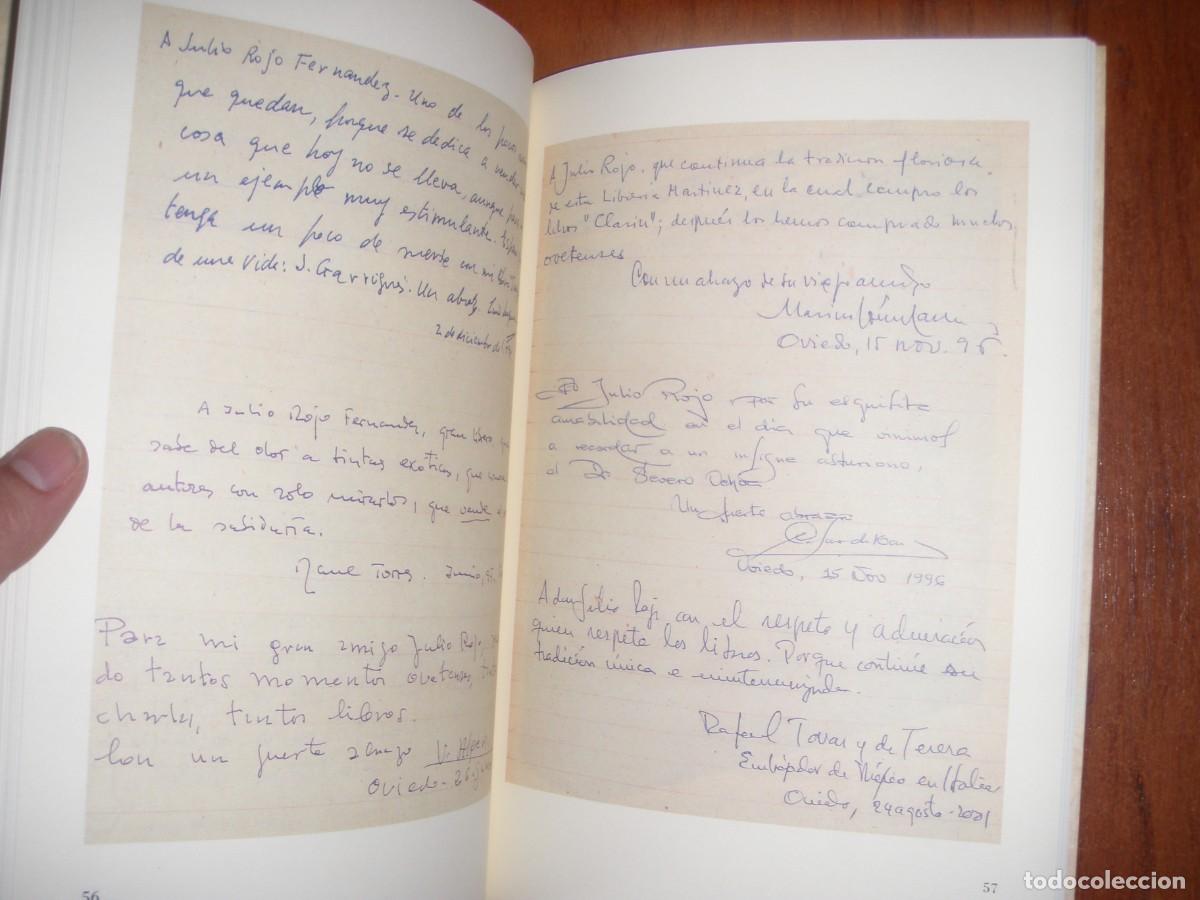 A Julio Rojo Fernandez. Uno de los pocos
que quedan, porque se dedica a vender
cosa que hoy no se lleva, aunque
un ejemplo muy estimulante.
tenga un poco de suerte con mi libro
de una vida: J. Garrigues. Un abrazo.
2 de diciembre de
A Julio Rojo Fernandez, gran librero que
sabe del olor a tintas exóticas, que
autores con solo mirarlos, que vende
de la sabiduría.
Torres. Junio, 95
Para mi gran amigo Julio Rojo,
do tantos momentos ovetenses,
charla, tantos libros.
Con un fuerte abrazo
Oviedo - 26
56
A Julio Rojo, que continua la tradicion gloriosa
de esta Libreria Martinez, en la cual compro los
libros "Clarin"; después los hemos comprado muchos
ovetenses
Con un abrazo de su viejo amigo
Oviedo, 15 Nov. 95.
A Julio Rojo por su exquisita
amabilidad en el dia que vinimos
a recordar a un insigne asturiano,
el Dr Severo Ochoa
Un fuerte abrazo
Oviedo, 15 Nov 1996
A don Julio Rojo con el respeto y admiración
quien respeta los libros. Porque continúe su
tradición única e ininterrumpida.
Rafael Tovar y de Teresa
Embajador de México en Italia
Oviedo, 24 agosto - 2001
57
todocoleccion